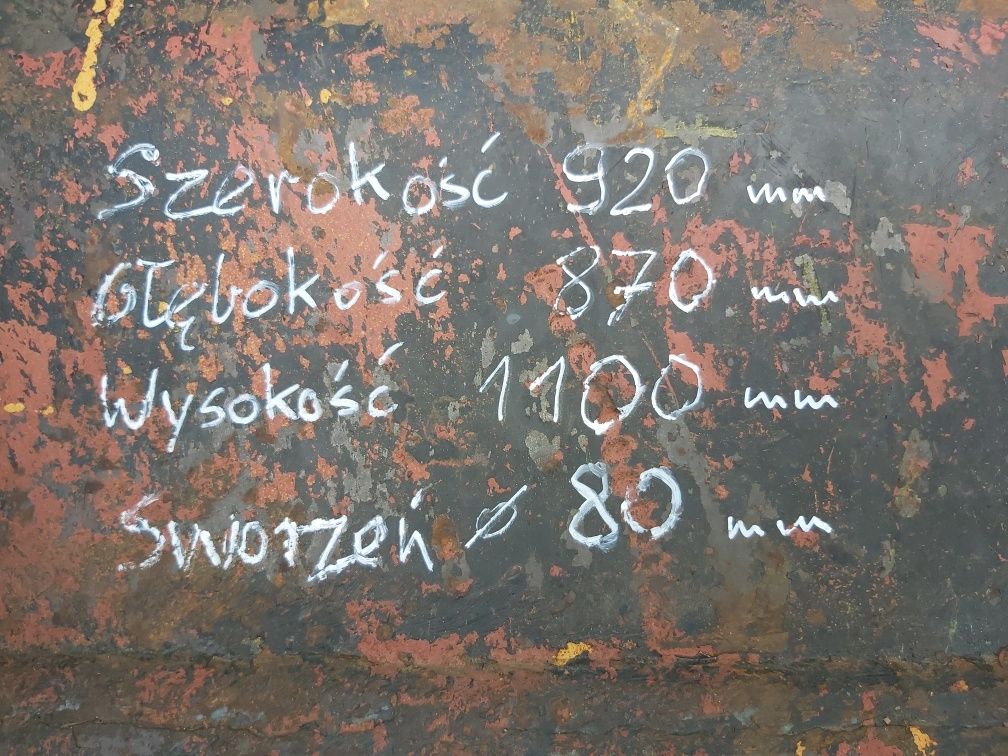 Szerokość 920 mm
Głębokość 870 mm
Wysokość 1100 mm
Sworzeń ø 80 mm